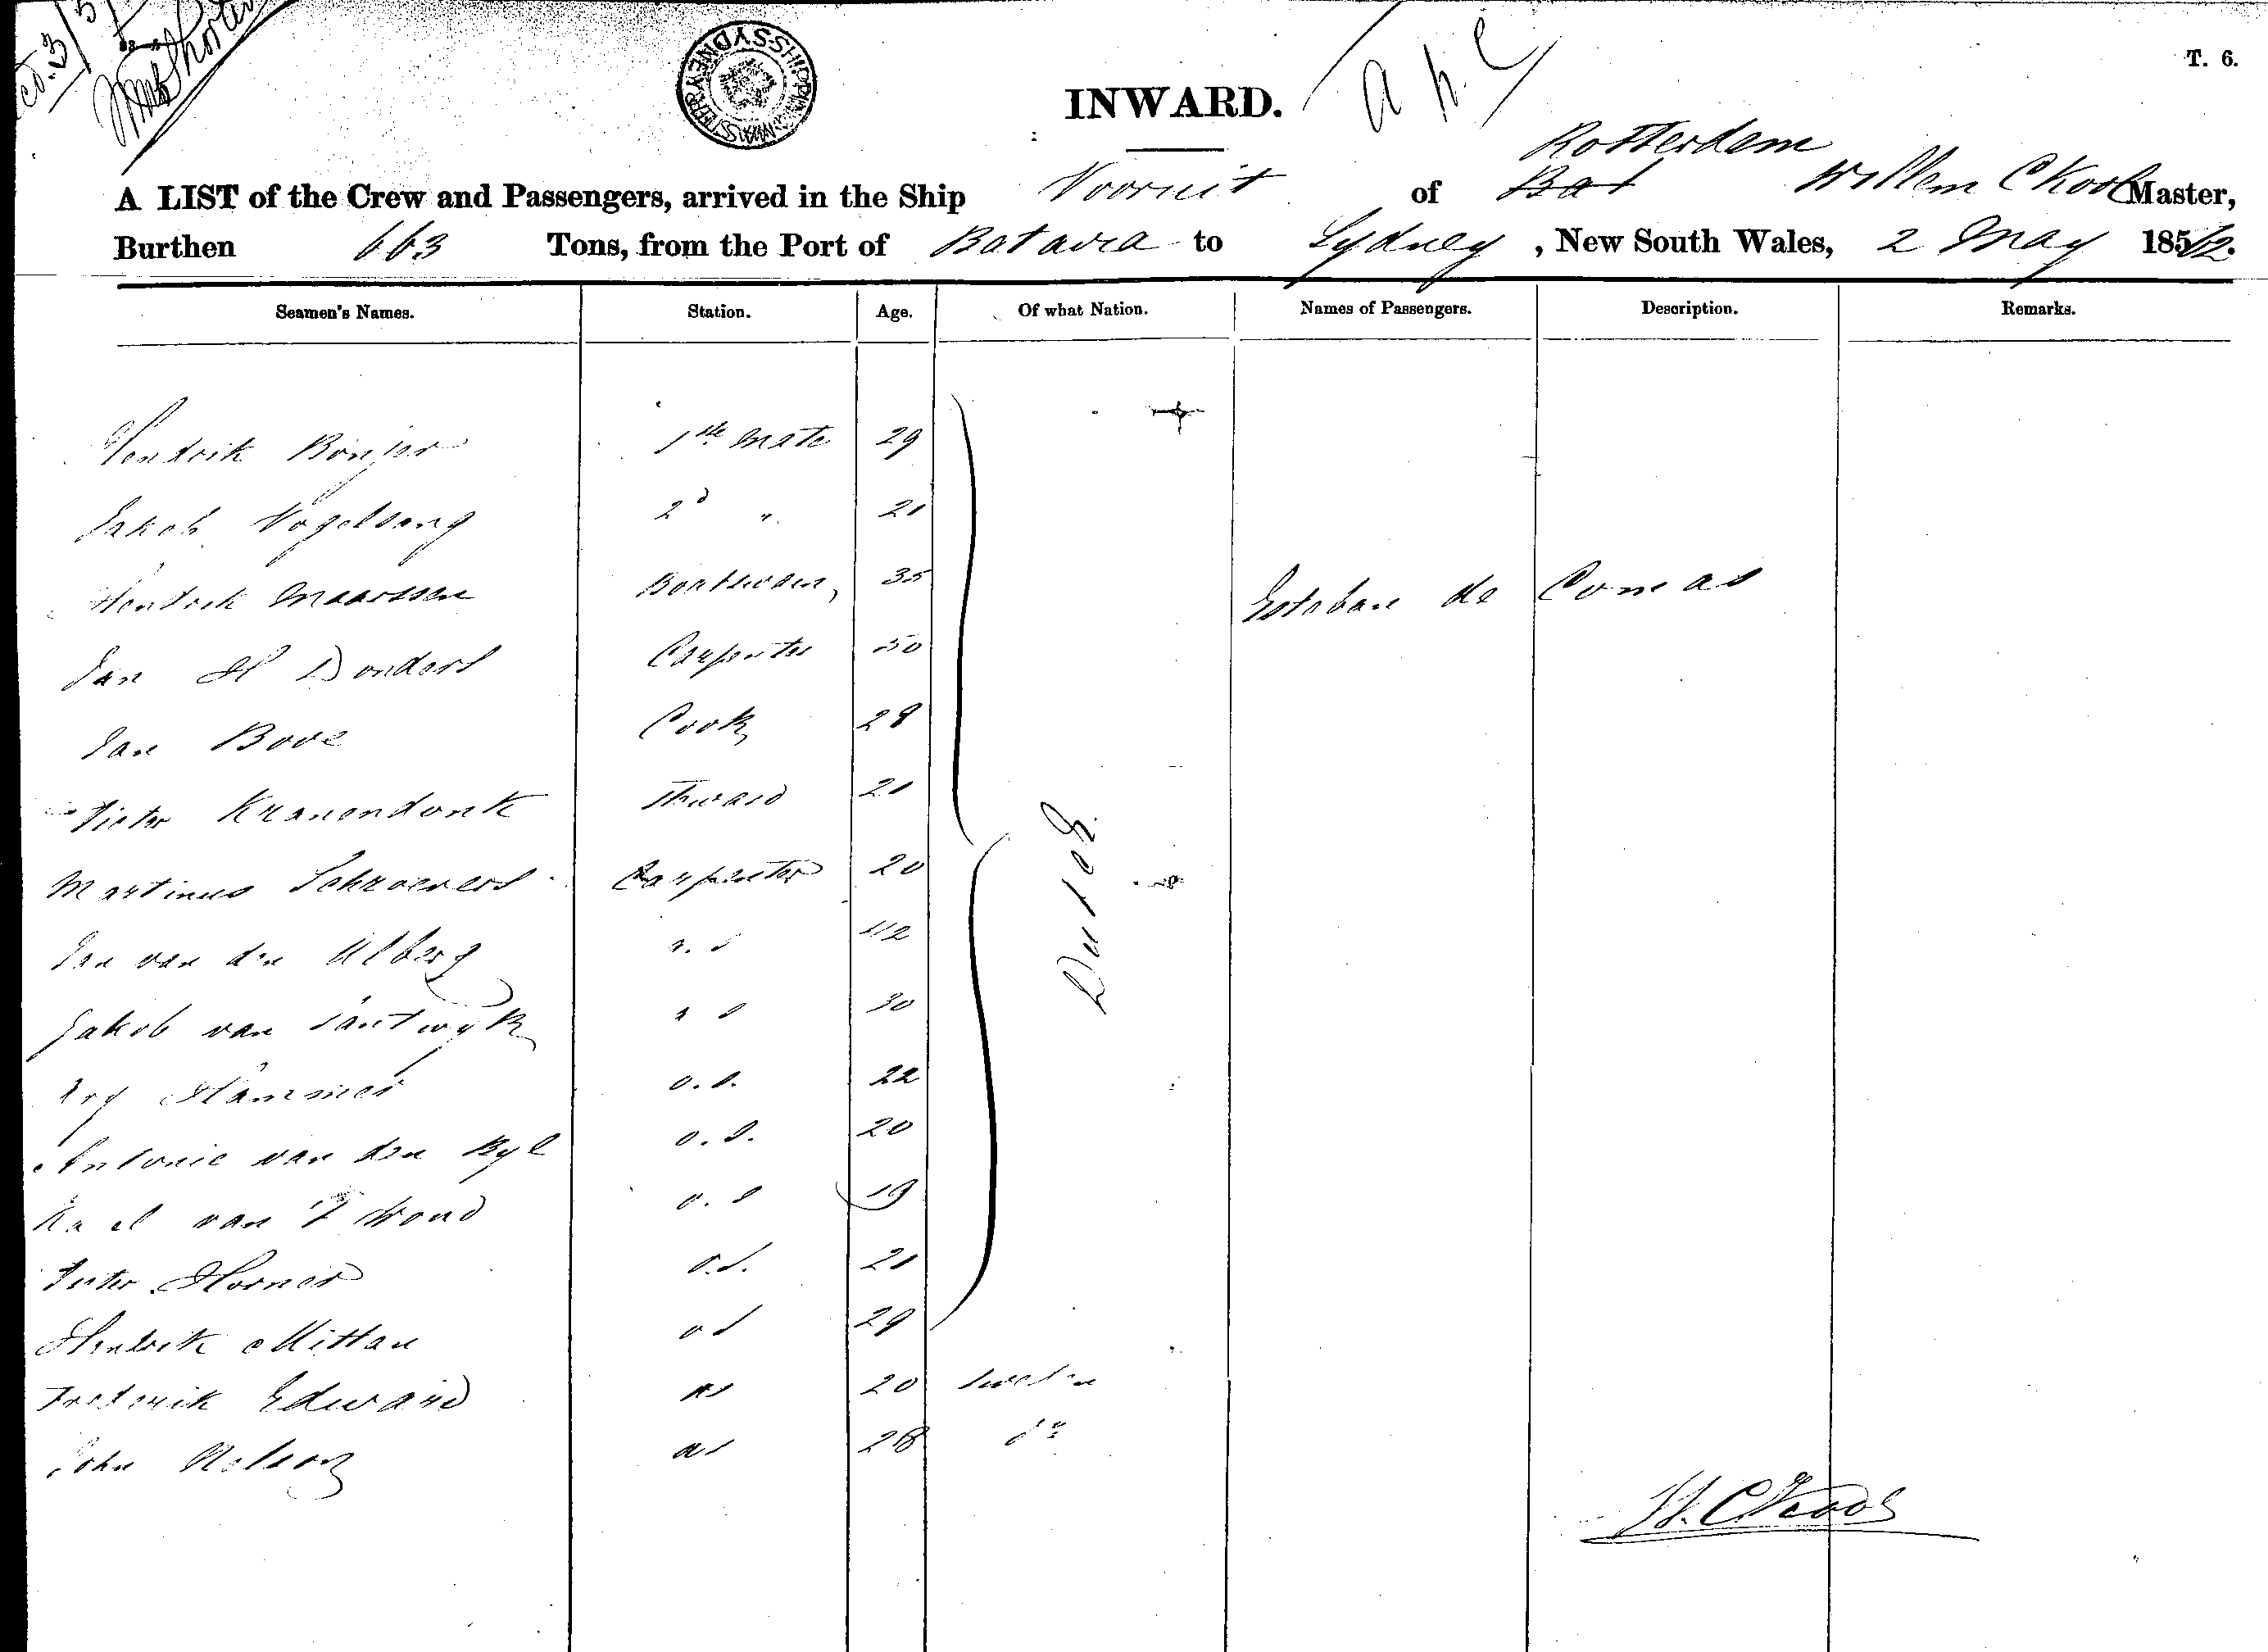 T. 6.
INWARD.
Rotterdam
A LIST of the Crew and Passengers, arrived in the Ship Vooruit of Bat Willem C Kool Master,
Burthen 663 Tons, from the Port of Batavia to Sydney, New South Wales, 2 May 1852.
Seamen's Names. Station. Age. Of what Nation. Names of Passengers. Description. Remarks.
Hendrik Bonjer 1ste Mate 29
Jakob Vogelsang 2d " 21
Hendrik Maarssen Boatswain, 35 Esteban de Comas
Jan H Donders Carpenter 50
Jan Bove Cook 28
Pieter Kranendonk Steward 21
Martinus Schroevers Carpenter 20
Dutch
Jan van den Alberg a. s
Jakob van Santwyk a s 30
Ary Hammer o. s. 22
Antonie van den Ryl o. s. 20
van 't Woud o. s 19
Pieter Horner o. s. 21
Hendrik Mittan o s 29
Frederik Edward as 20 Sweden
John Nelson as 28 do
W. C Kool